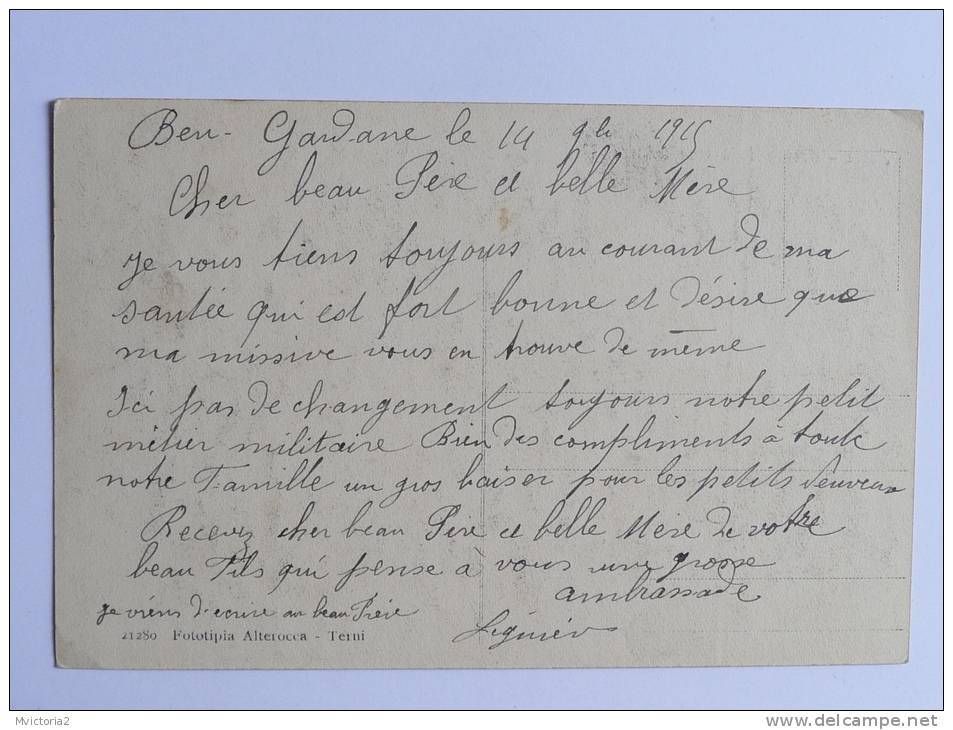 Ben-Gardane le 14 9bre 1915
Cher beau Père et belle Mère
Je vous tiens toujours au courant de ma
santée qui est fort bonne et désire que
ma missive vous en trouve de même
Ici pas de changement toujours notre petit
métier militaire Bien des compliments à toute
notre Famille un gros baiser pour les petits Neuveux
Recevez cher beau Père et belle Mère de votre
beau Fils qui pense à vous une grosse
ambrassade
je viens d'ecrire au beau Frère
21280 Fototipia Alterocca - Terni
Mvictoria2
www.delcampe.net